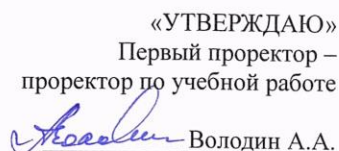 «УТВЕРЖДАЮ»
Первый проректор –
проректор по учебной работе
Володин А.А.